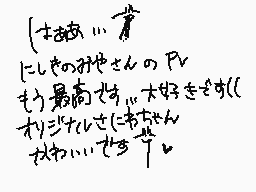 はぁぁぁ…
にしきのみやさんのPV
もう最高です…大好きです((
オリジナルさにわちゃん
かわいいです